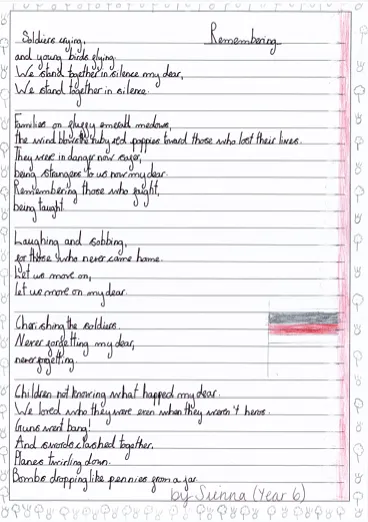 Remembering
Soldiers crying,
and young birds flying.
We stand together in silence my dear,
We stand together in silence.
Families on fluffy emerald medows,
the wind blows the ruby red poppies toward those who lost their lives.
They were in danger now safer,
being strangers to us now my dear.
Remembering those who fought,
being taught.
Laughing and sobbing,
for those who never came home.
Let us move on,
let us move on my dear.
Cherishing the soldiers,
Never forgetting my dear,
never forgetting.
Children not knowing what happed my dear.
We loved who they were even when they weren't here.
Guns went bang!
And swords clashed together,
Planes twirling down.
Bombs dropping like pennies from a jar.
by Sienna (Year 6)